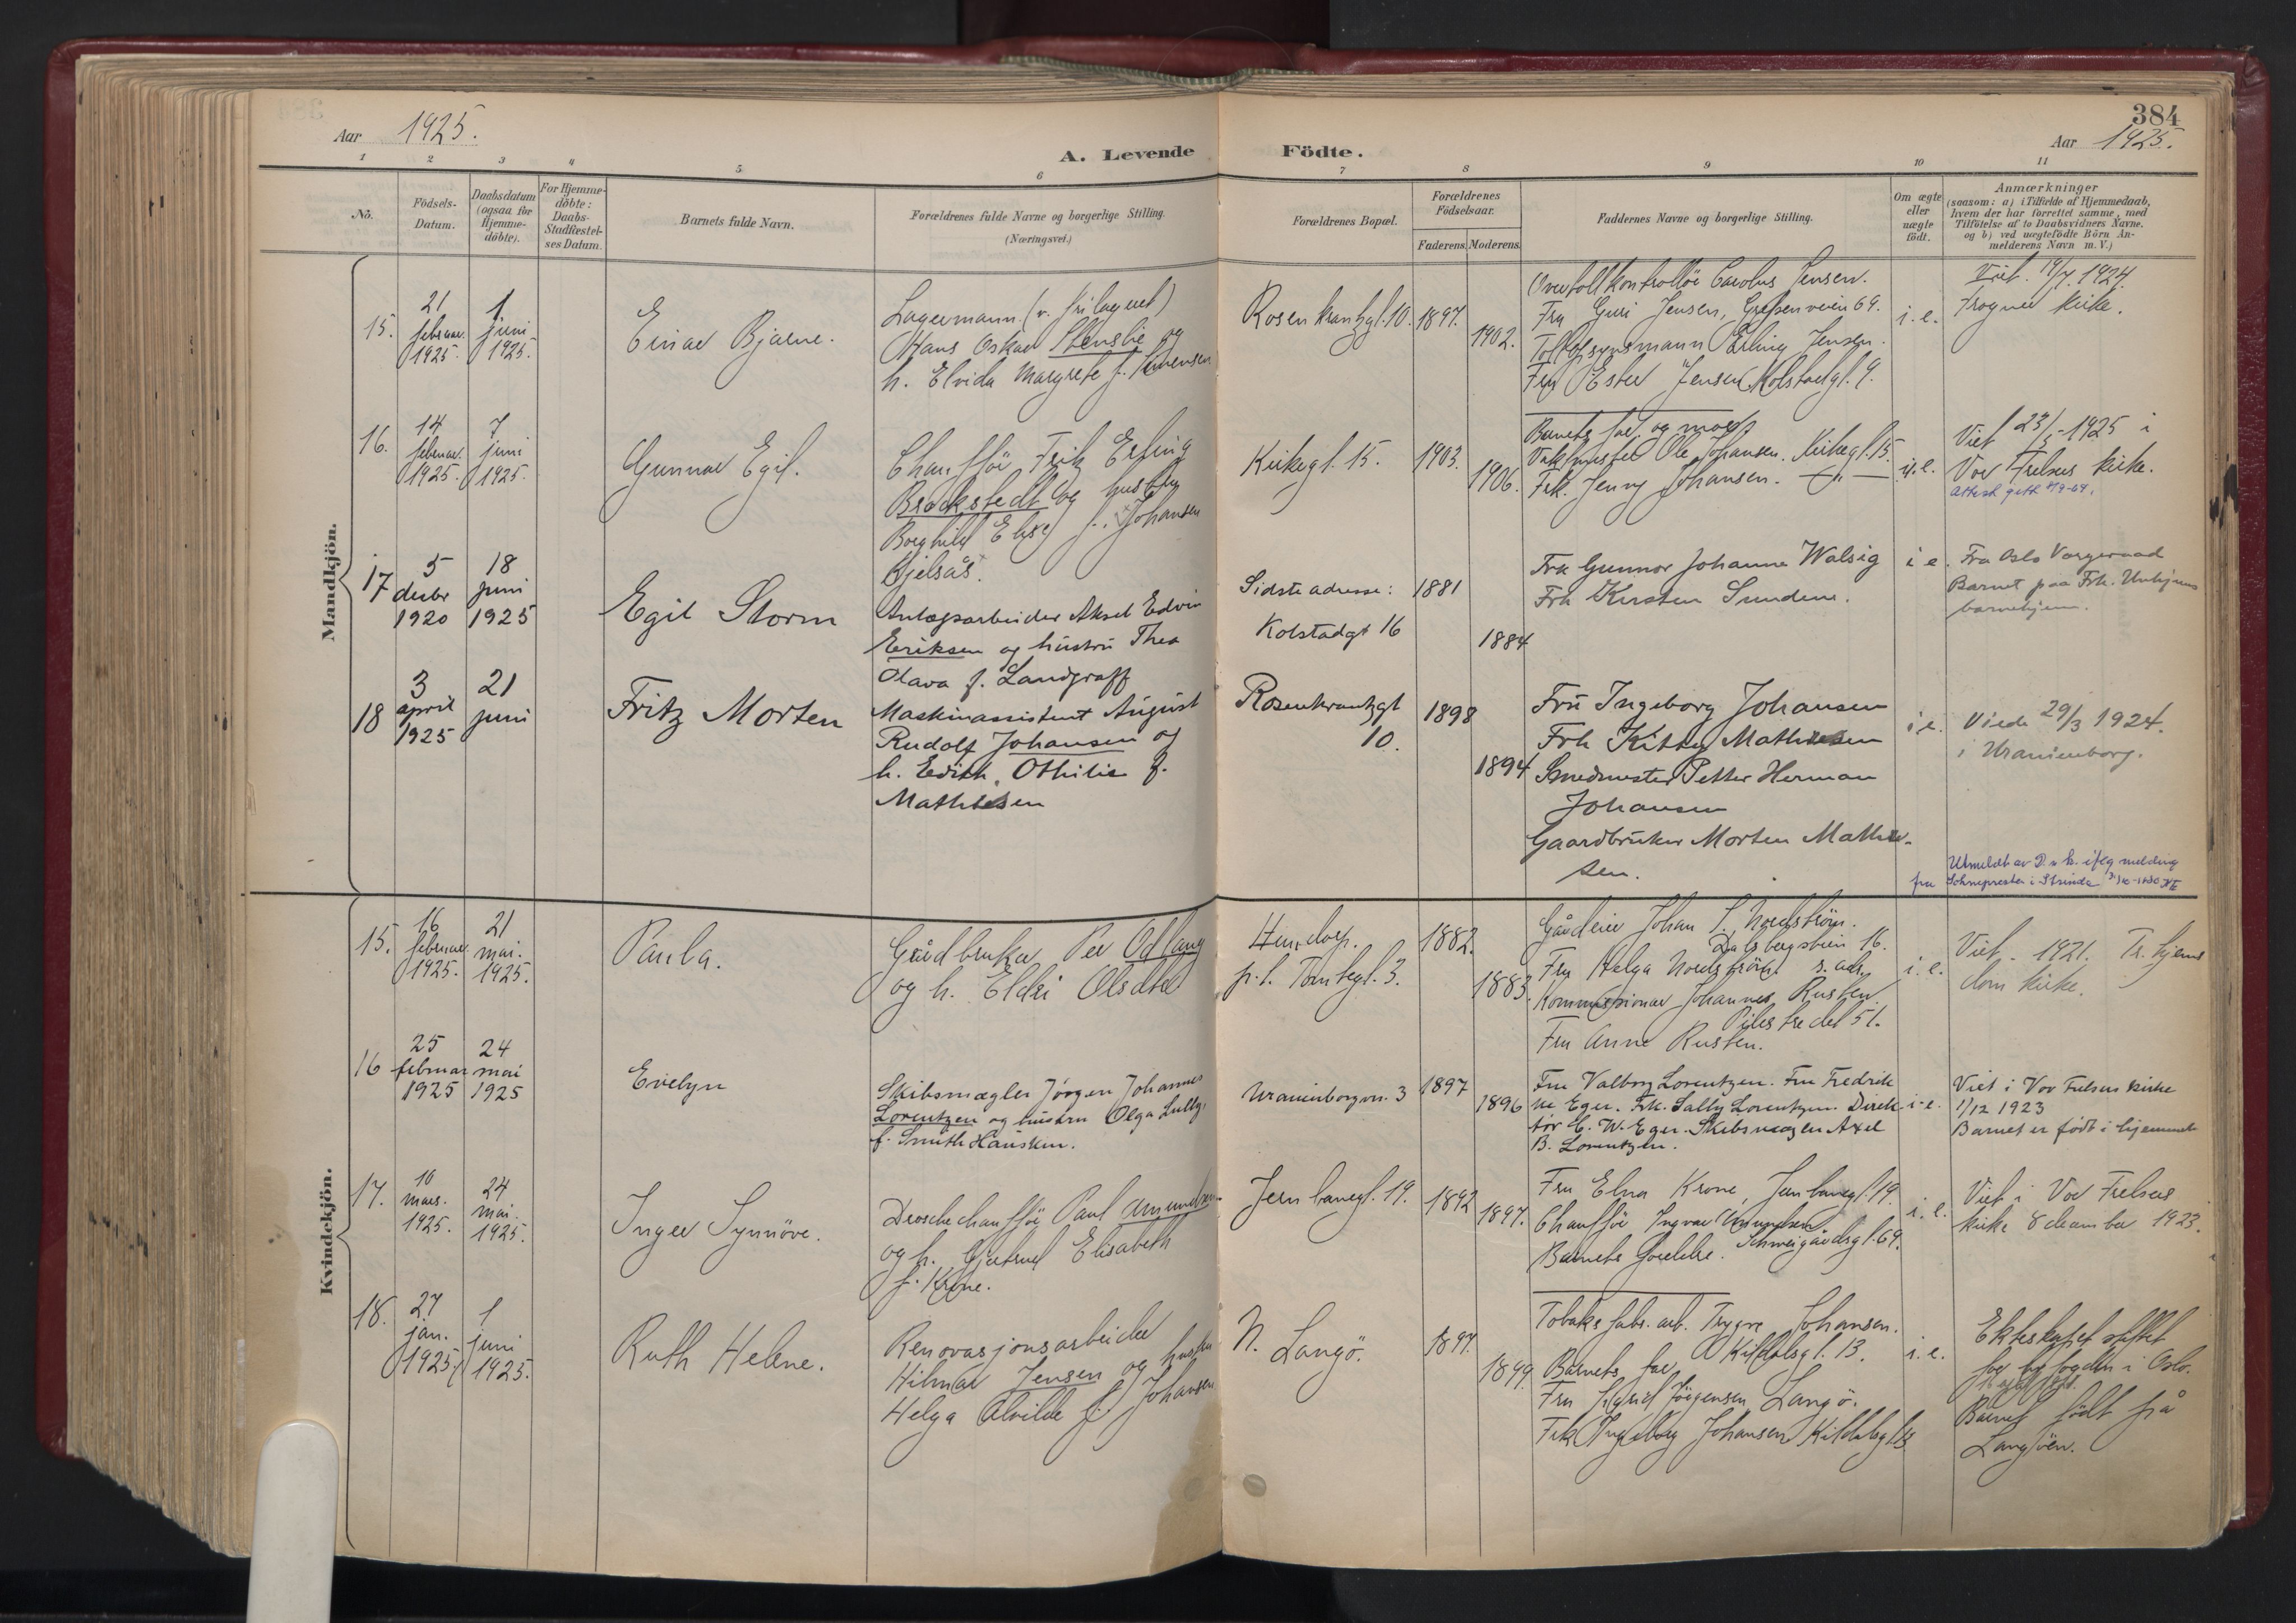 384
Aar 1925.
Aar 1925.
A. Levende Födte.
1 2 3 4 5 6 7 8 9 10 11
No.
Födsels-
Datum.
Daabsdatum
(ogsaa for
Hjemme-
döbte).
For Hjemme-
döbte:
Daabs-
Stadfæstel-
ses Datum.
Barnets fulde Navn.
Forældrenes fulde Navne og borgerlige Stilling.
(Næringsvei.)
Forældrenes Bopæl.
Forældrenes
Födselsaar.
Faderens. Moderens.
Faddernes Navne og borgerlige Stilling.
Om ægte
eller
uægte
födt.
Anmærkninger
(saasom: a) i Tilfælde af Hjemmedaab,
hvem der har forrettet samme, med
Tilföielse af to Daabsvidners Navne,
og b) ved uægtefödte Börn An-
melderens Navn m. V.)
Mandkjön.
15.
21
februar
1925.
1
juni
1925.
Einar Bjarne.
Lagermann (v. frilageret)
Hans Oskar Stenslie og
h. Elvida Margrete f.
Rosenkrantzgt. 10.
1897.
1902.
Overtollkontrollör Carolus Jensen.
Fru Guri Jensen, Grefsenveien 69.
Tollopsynsmann Erling Jensen.
Fru Ester Jensen, Kolstadgt. 9.
i. e.
Viet 19/7 1924.
Frogner kirke.
16.
14
februar
1925.
7
juni
1925.
Gunnar Egil.
Chaufför Fritz Erling
Brockstedt og hustru
Borghild Elise f. Johansen
Kjelsås.
Kirkegt. 15.
1903.
1906.
Barnets far og mor.
Vaktmester Ole Johansen. Kirkegt. 15.
Frk. Jenny Johansen. — " —
i. e.
Viet 23/5 - 1925 i
Vor Frelsers kirke.
17
5
decbr
1920
18
juni
1925
Egil Storm
Anlægsarbeider Aksel Edvin
Eriksen og hustru Thea
Olava f. Landgraff
Sidste adresse:
Kolstadgt 16
1881
1884
Fru Gunnor Johanne Walsig
Frk Kirsten Sundene.
i e.
Fra Oslo Vergeraad
Barnet paa Frk. Unhjems
barnehjem.
18
3
april
1925
21
juni
Fritz Morten
Maskinassistent August
Rudolf Johansen og
h. Edith Othilie f.
Mathiesen
Rosenkrantzgt
10.
1898
1894
Fru Ingeborg Johansen
Frk Kitty Mathiesen
Smedmester Petter Herman
Johansen
Gaardbruker Morten Mathie-
sen.
i e.
Viede 29/3 1924.
i Uranienborg.
Utmeldt av D. n. k. iflg melding
fra Sokneprester i Strinda
Kvindekjön.
15.
16
februar
1925.
21
mai.
1925.
Paula.
Gårdbruker Per Odlaug
og h. Eldri Olsdtr
p. t. Tomtegt. 3.
1882.
1883.
Gårdeier Johan S. Nordström.
Dalsbergstien 16.
Fru Helga Nordström s. ads.
Kommissionær Johannes Rusten
Pilestredet 51.
Fru Anne Rusten.
i. e.
Viet - 1921. Tr. hjems
dom kirke.
16
25
februar
1925
24
mai
1925
Evelyn
Skibsmægler Jörgen Johannes
Lorentzen og hustru Olga Lully
f. Smith Hansken.
Uranienborgvn. 3
1897
1896
Fru Valborg Lorentzen. Fru Fredrik
ke Eger. Frk. Sally Lorentzen. Direk
tör C. W. Eger. Skibsmægler Axel
B. Lorentzen.
i. e.
Viet i Vor Frelsers kirke
1/12 1923
Barnet er födt i hjemmet
17.
10
mars.
1925.
24
mai.
1925.
Inger Synnöve.
Droschechaufför Paul Amundsen
og h. Gjertrud Elisabeth
f. Krone.
Jernbanegt. 19.
1892
1897.
Fru Elna Krone, Jernbanegt. 19
Chaufför Ingvar Amundsen
Schweigårdsgt. 69.
Barnets foreldre.
i. e.
Viet i Vor Frelsers
kirke 8 desember 1923.
18.
27
jan.
1925.
1
juni
1925.
Ruth Helene.
Renovasjonsarbeider
Hilmar Jensen og hustru
Helga Alvilde f. Johansen
N. Langö.
1897.
1899.
Tobaksfabr. arb. Trygve Johansen.
Kildalsgt. 13.
Barnets far
Fru Sigrid Jörgensen Langö.
Frk. Ingeborg Johansen Kildalsgt. 13
i. e.
Ekteskapet stiftet
for byfogden i Oslo.
Barnet födt på
Langöen.